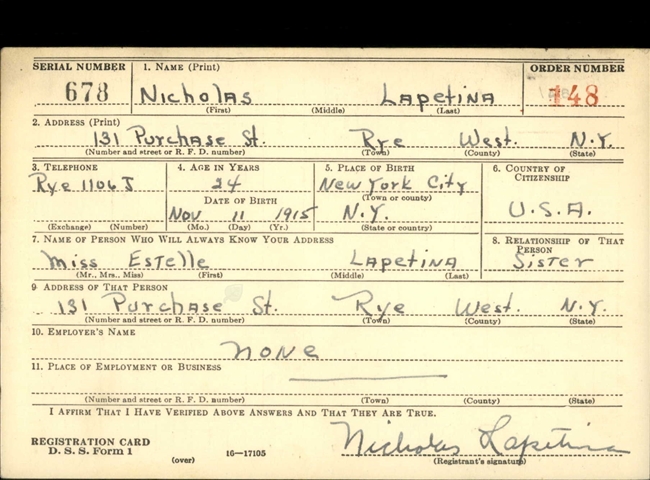 SERIAL NUMBER 1. NAME (Print) ORDER NUMBER
678 Nicholas Lapetina 148
(First) (Middle) (Last)
2. ADDRESS (Print)
131 Purchase St. Rye West. N.Y.
(Number and street or R. F. D. number) (Town) (County) (State)
3. TELEPHONE 4. AGE IN YEARS 5. PLACE OF BIRTH 6. COUNTRY OF CITIZENSHIP
Rye 1106 J 24 New York City
DATE OF BIRTH (Town or county)
Nov 11 1915 N.Y. U.S.A.
(Exchange) (Number) (Mo.) (Day) (Yr.) (State or country)
7. NAME OF PERSON WHO WILL ALWAYS KNOW YOUR ADDRESS 8. RELATIONSHIP OF THAT PERSON
Miss Estelle Lapetina Sister
(Mr., Mrs., Miss) (First) (Middle) (Last)
9 ADDRESS OF THAT PERSON
131 Purchase St. Rye West. N.Y.
(Number and street or R. F. D. number) (Town) (County) (State)
10. EMPLOYER'S NAME
None
11. PLACE OF EMPLOYMENT OR BUSINESS
(Number and street or R. F. D. number) (Town) (County) (State)
I AFFIRM THAT I HAVE VERIFIED ABOVE ANSWERS AND THAT THEY ARE TRUE.
REGISTRATION CARD
D. S. S. Form 1 16—17105 Nicholas Lapetina
(over) (Registrant's signature)